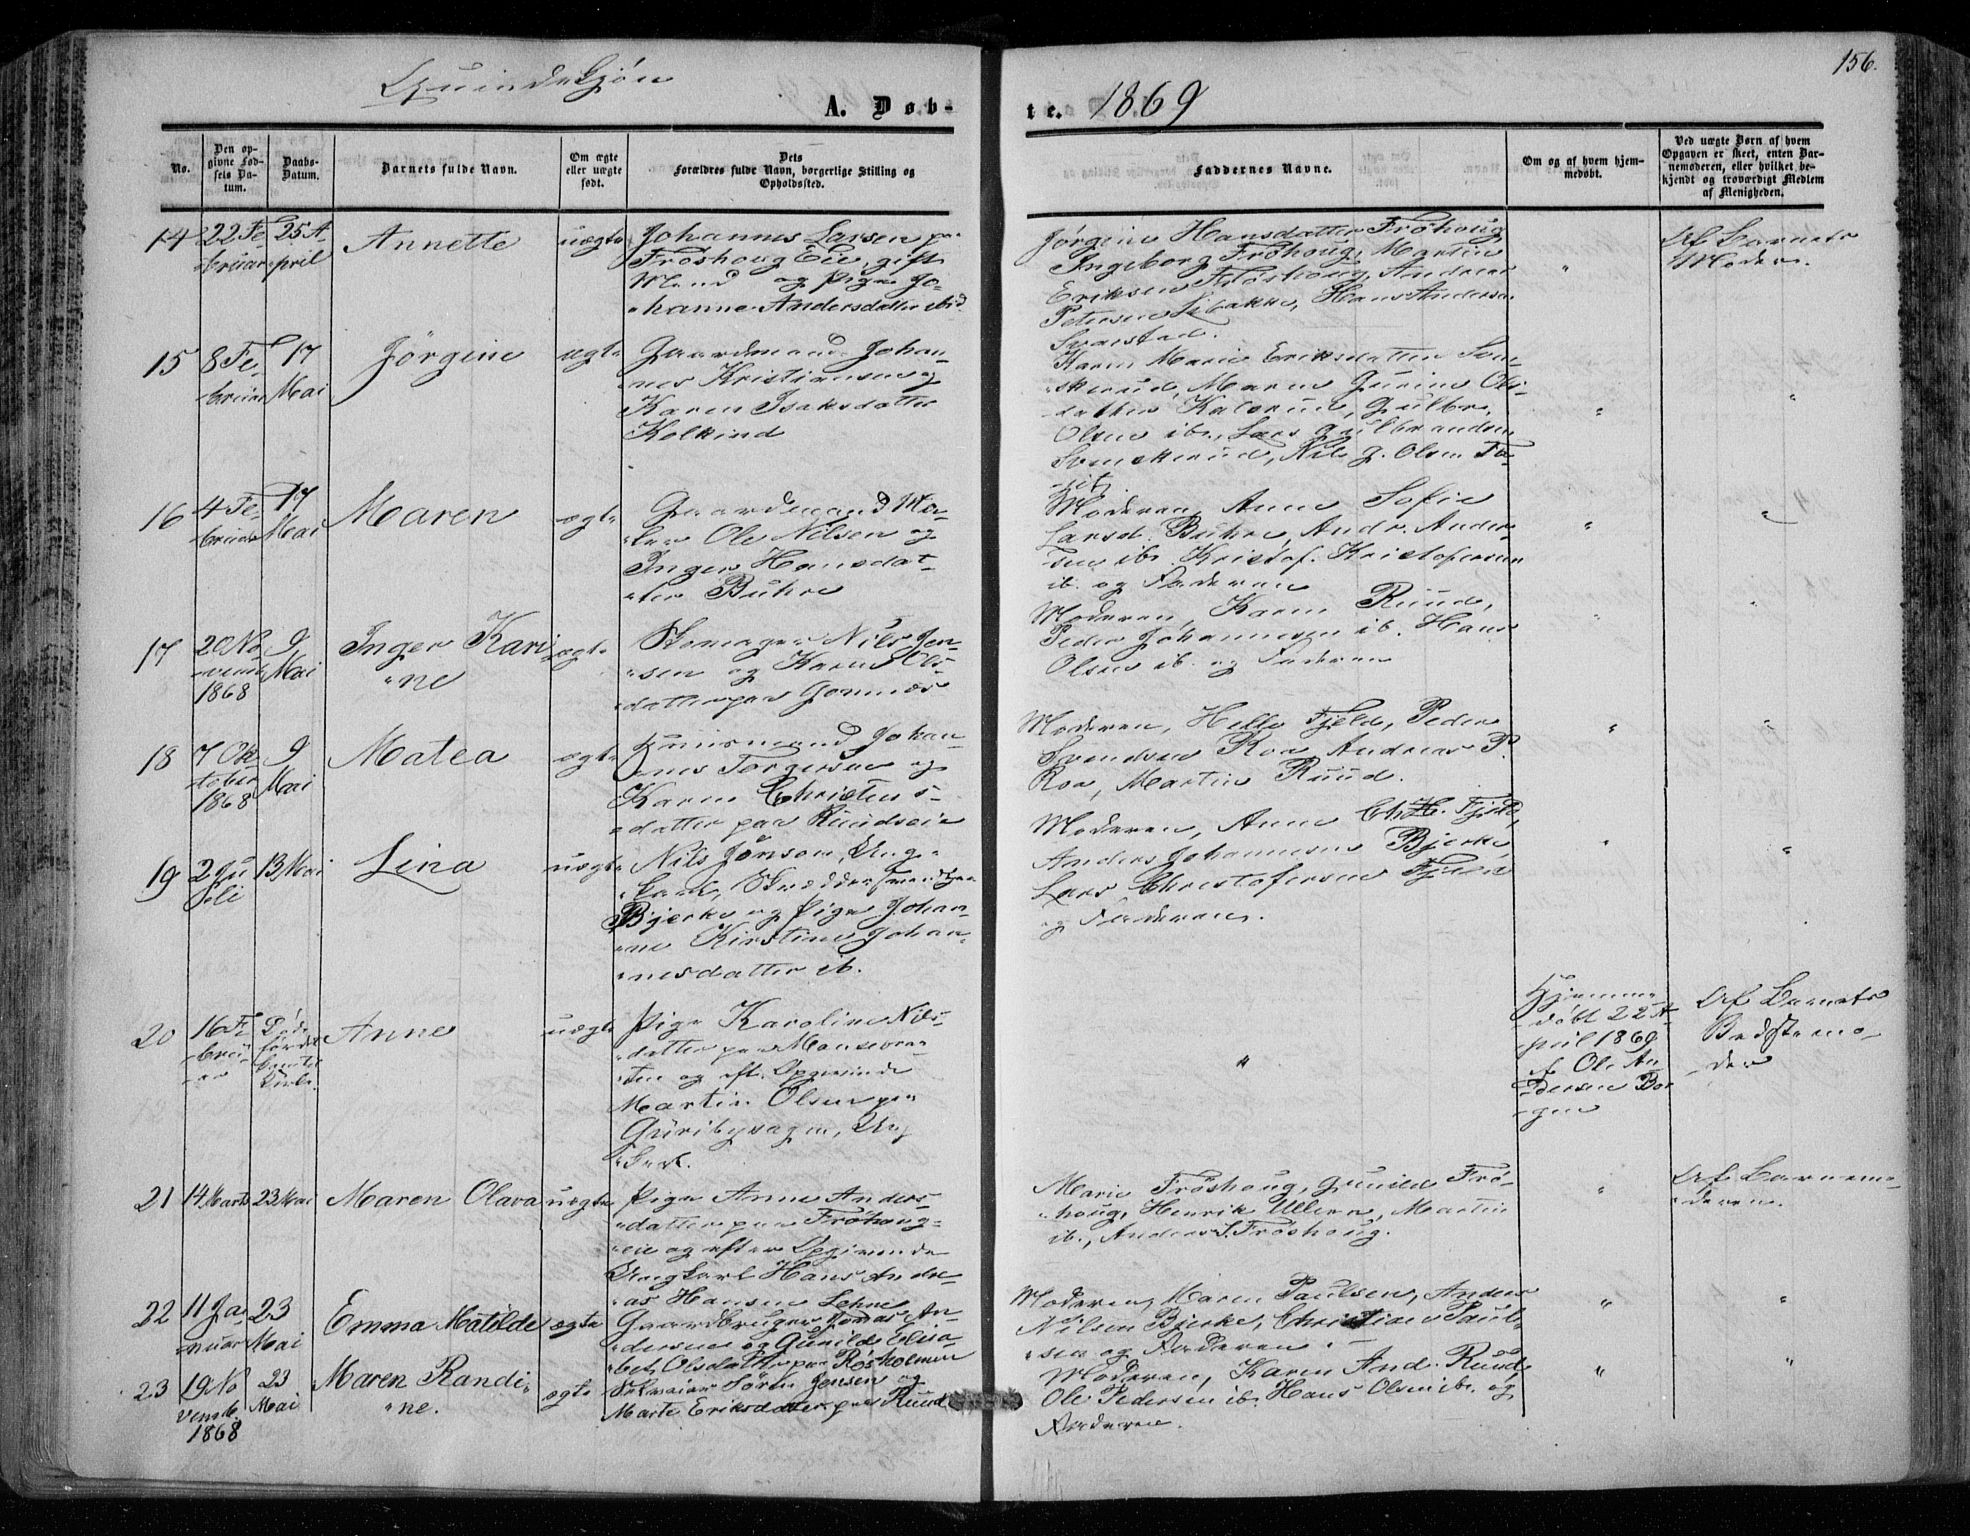 Quindekjøn
A. Døb-
te. 1869
156.
No.
Den op-
givne Fød-
sels Da-
tum.
Daabs-
Datum.
Barnets fulde Navn.
Om ægte
eller uægte
født.
Dets
Forældres fulde Navn, borgerlige Stilling og
Opholdssted.
Faddernes Navne.
Om og af hvem hjem-
medøbt.
Ved uægte Børn af hvem
Opgaven er skeet, enten Bar-
nemoderen, eller hvilket be-
kjendt og troværdigt Medlem
af Menigheden.
14
22 Fe-
bruar
25 A-
pril
Annette
uægte
Johannes Larsen paa
Frøshoug Eie, gift
Mand og Pige Jo-
hanne Andersdatter ibid.
Jørgine Hansdatter Frøhoug,
Ingeborg Frøhoug, Martin
Eriksen Frøshoug, Andreas
Petersen Libakke, Hans Andersen
Svarstad.
"
Af Barnets
Moder.
15
8 Fe-
bruar
17
Mai
Jørgine
ægte
Gaardmand Johan-
nes Kristiansen og
Karen Isaksdatter
Kolkind
Karen Marie Eriksdatter Svn-
skerud, Maren Gurine Ols-
datter Kalsrud, Gulbr.
Olsen ib., Lars Gulbrandsen
Svenskerud, Nils G. Olsen
"
"
16
4 Fe-
bruar
17
Mai
Maren
ægte
Gaardmand Ma-
ler Ole Nilsen og
Inger Hansdat-
ter Buhre
Moderen, Anne Sofie
Larsd. Buhre, Andr. Ander-
sen ib. Kristof. Kristofersen
ib. og Faderen
"
"
17
20 No-
vemb.
1868
9
Mai
Inger Kari-
ne
ægte
Skomager Nils Jen-
sen og Karen Ols-
datter paa Gomnæs
Moderen, Karen Ruud,
Peder Johannesen ib. Hans
Olsen ib. og Faderen
"
"
18
7 Ok-
tober
1868
9
Mai
Matea
ægte
Huusmand Johan-
nes Torgersen og
Karen Christens-
datter paa Ruudseie
Moderen, Helle Fjeld, Peder
Svendsen Roa, Andreas P.
Roa, Martin Ruud.
"
"
19
2 Ju-
li
13 Mai
Lina
uægte
Nils Jonsen, Ung-
karl, Skrædder
Bjerke og Pige Johan-
ne Kirstine Johan-
nesdatter ib.
Moderen, Anne Chr. Fjeld,
Anders Johannesen Bjerke,
Lars Christofersen Fjeld
og Faderen.
"
"
20
16 Fe-
bruar
Død
før
Anne
uægte
Pige Karoline Nils-
datter paa
og eft. Opgivende
Martin Olsen paa
Guribysagen, Ung-
karl.
"
Hjemme-
døbt 22 A-
pril 1869
af Ole An-
dersen Bor-
gen
Af Barnets
Bedstemo-
der
21
14 Marts
23 Mai
Maren Olava
uægte
Pige Anne Anders-
datter paa Frøhoug-
eie og efter Opgivende
Ungkarl Hans Andre-
as Hansen Lehne
Marie Frøshoug, Gunild Frø-
houg, Henrik Ullern, Martin
ib., Anders S. Frøshoug.
"
Af Barnemo-
deren.
22
11 Ja-
nuar
23
Mai
Emma Matilde
ægte
Gaardbruger Jonas An-
dersen og Gunild Elisa-
bet Olsdatter paa Røsholmen
Moderen, Maren Paulsen, Anders
Nilsen Bjerke, Christian Paul-
sen og Faderen.
"
"
23
19 No-
vemb.
1868
23
Mai
Maren Randi-
ne.
ægte
Søren Jensen og
Marte Eriksdatter paa Ruud
Moderen, Karen And. Ruud,
Ole Pedersen ib. Hans Olsen ib. og
Faderen.
"
"